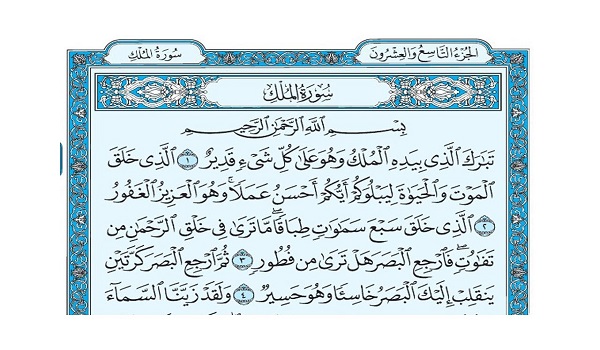 الجزء التاسع والعشرون
سورة الملك
سُورَةُ المُلْكِ
بِسْمِ اللَّهِ الرَّحْمَٰنِ الرَّحِيمِ
تَبَٰرَكَ ٱلَّذِى بِيَدِهِ ٱلْمُلْكُ وَهُوَ عَلَىٰ كُلِّ شَىْءٍ قَدِيرٌ ١ ٱلَّذِى خَلَقَ
ٱلْمَوْتَ وَٱلْحَيَوٰةَ لِيَبْلُوَكُمْ أَيُّكُمْ أَحْسَنُ عَمَلًا ۚ وَهُوَ ٱلْعَزِيزُ ٱلْغَفُورُ
٢ ٱلَّذِى خَلَقَ سَبْعَ سَمَٰوَٰتٍ طِبَاقًا ۖ مَّا تَرَىٰ فِى خَلْقِ ٱلرَّحْمَٰنِ مِن
تَفَٰوُتٍ ۖ فَٱرْجِعِ ٱلْبَصَرَ هَلْ تَرَىٰ مِن فُطُورٍ ٣ ثُمَّ ٱرْجِعِ ٱلْبَصَرَ كَرَّتَيْنِ
يَنقَلِبْ إِلَيْكَ ٱلْبَصَرُ خَاسِئًا وَهُوَ حَسِيرٌ ٤ وَلَقَدْ زَيَّنَّا ٱلسَّمَآءَ